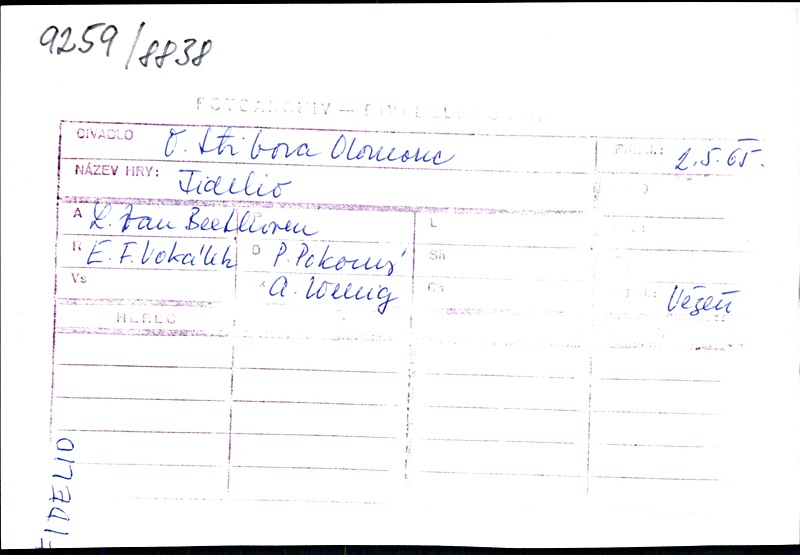 9259/8838
FOTOARCHIV —
DIVADLO O. Stibora Olomouc 2.5.65.
NÁZEV HRY: Fidelio
A L. van Beethoven L
R E. F. Vokálek D P. Pokorný Sh
Vs A. Wenig Věžeň
HEREC
FIDELIO